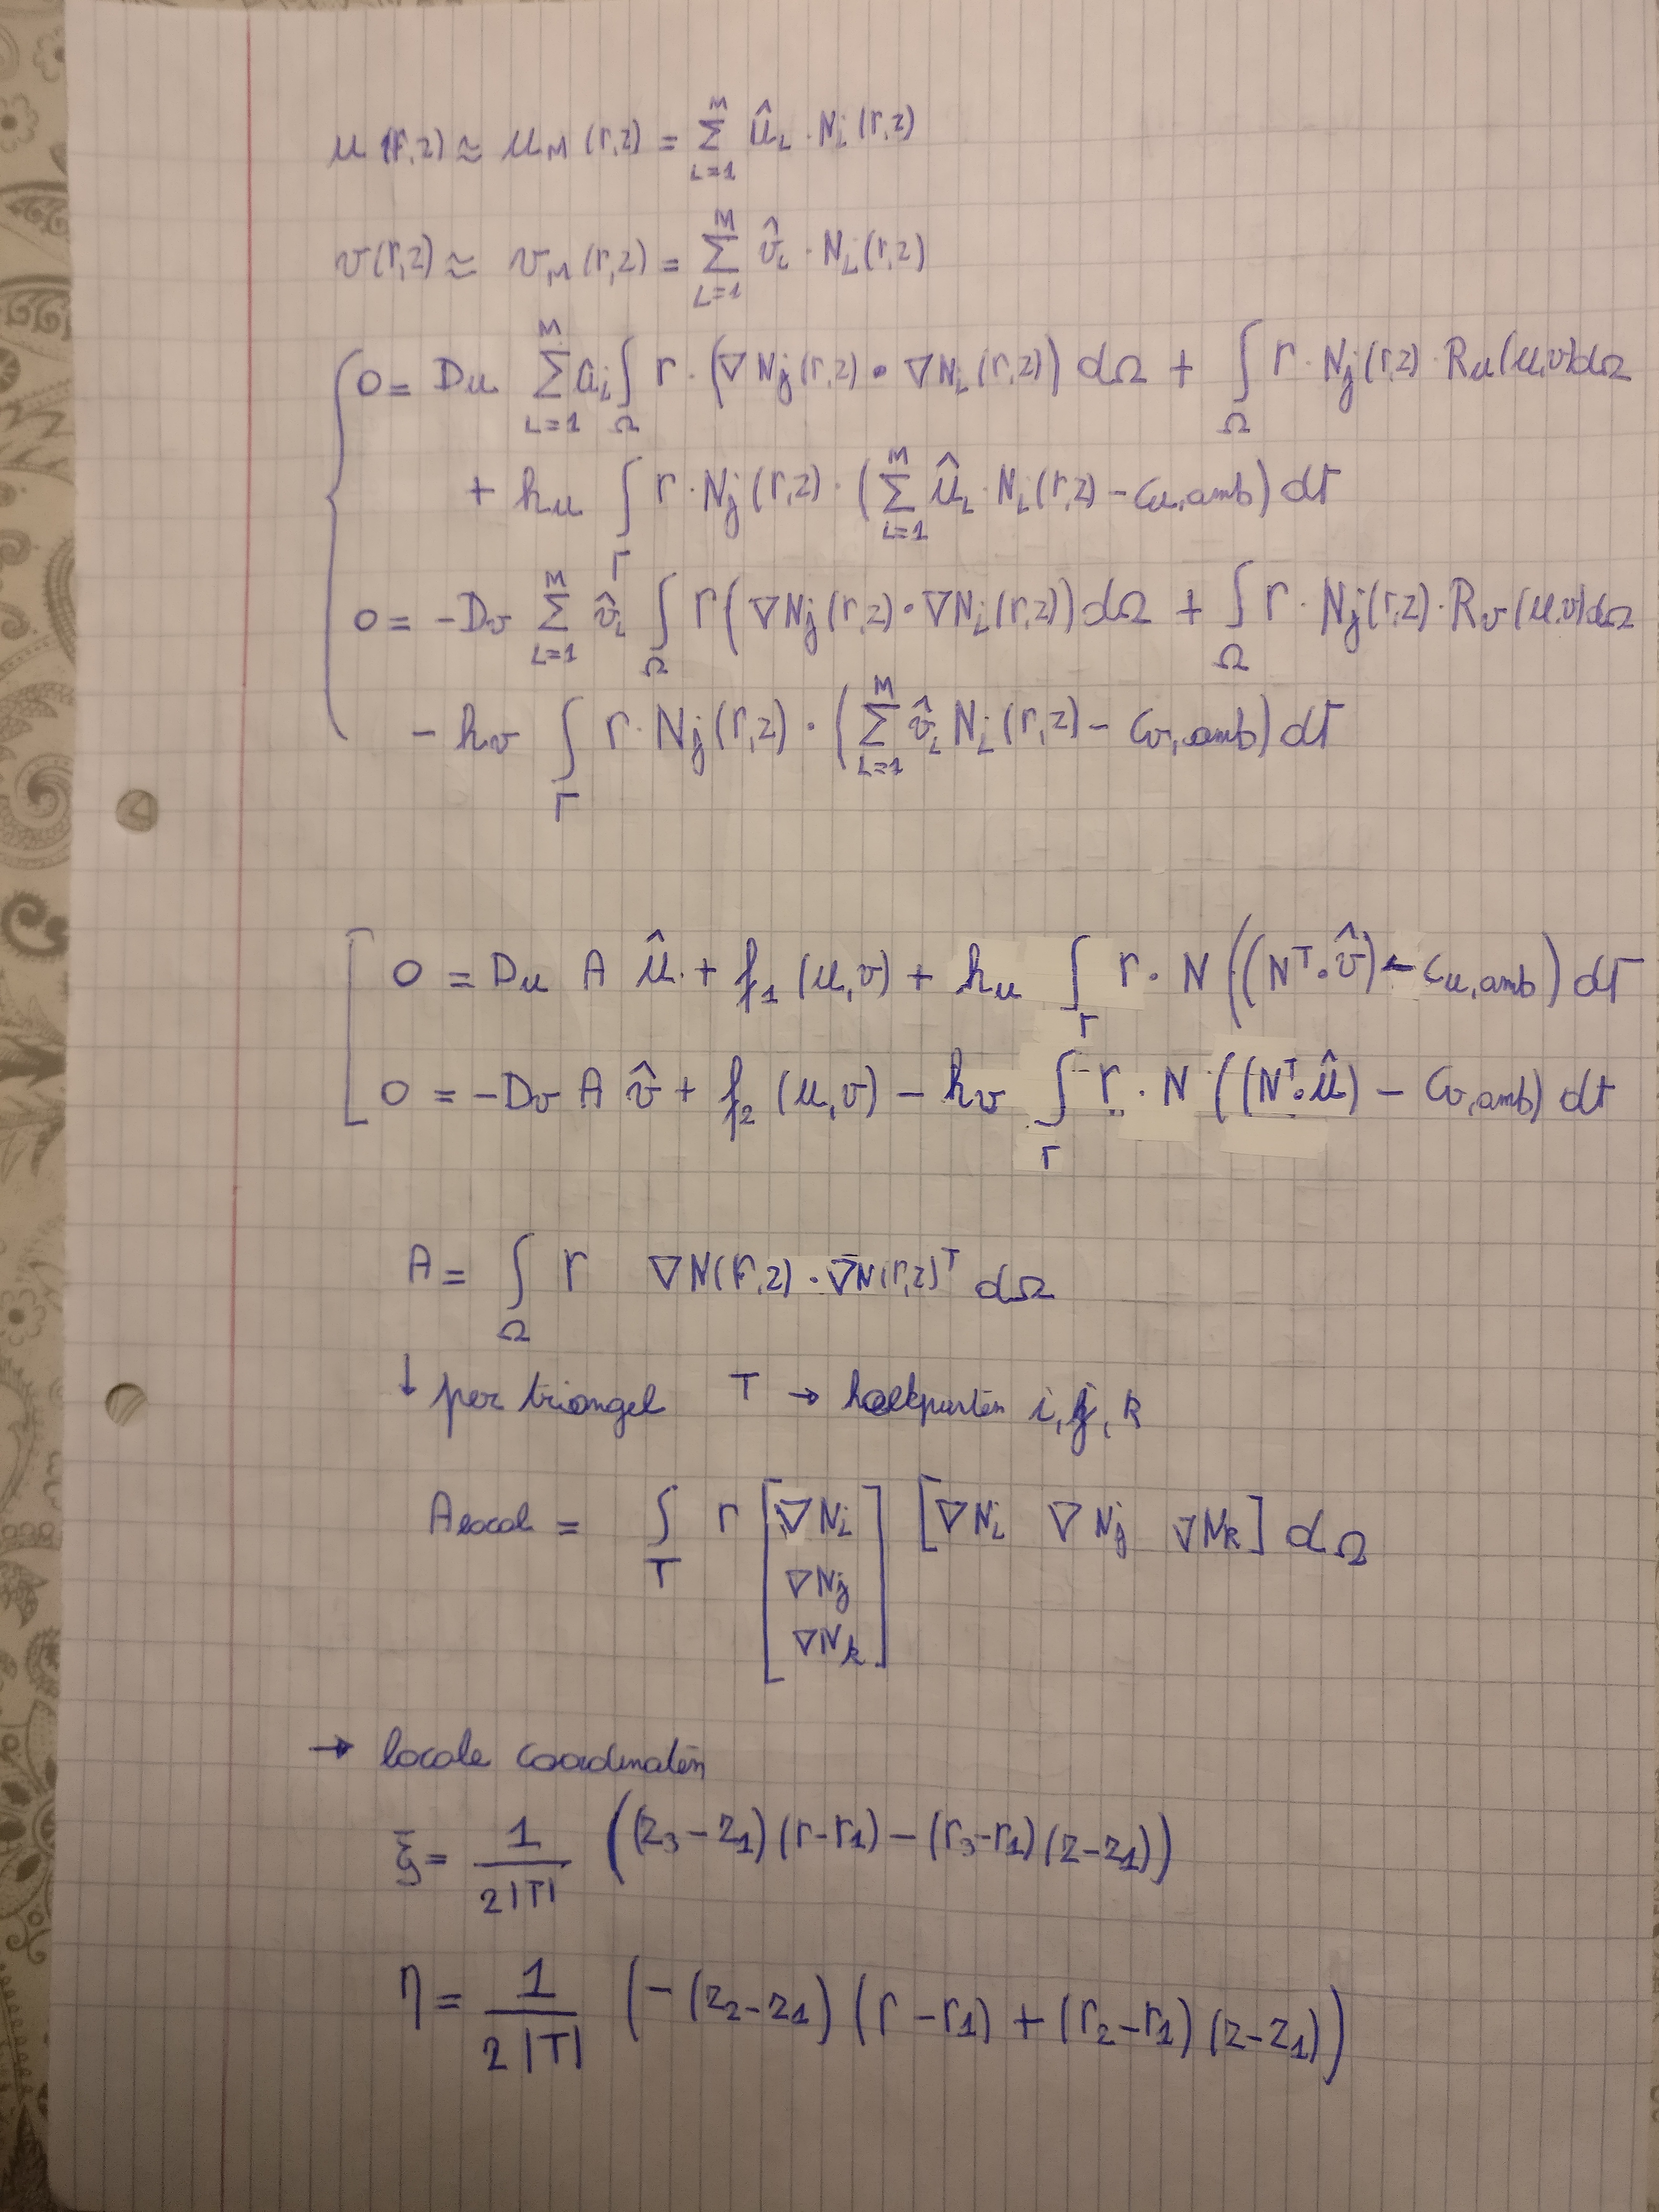 u(r,z) ≈ u_M(r,z) = Σ_{i=1}^{M} û_i · N_i(r,z)
v(r,z) ≈ v_M(r,z) = Σ_{i=1}^{M} v̂_i · N_i(r,z)
0 = D_u Σ_{i=1}^{M} a_i ∫_Ω r · (∇N_j(r,z) • ∇N_i(r,z)) dΩ + ∫_Ω r · N_j(r,z) · R_u(u,v)dΩ
+ h_u ∫_Γ r · N_j(r,z) · (Σ_{i=1}^{M} û_i · N_i(r,z) - C_{u,amb}) dΓ
0 = -D_v Σ_{i=1}^{M} v̂_i ∫_Ω r(∇N_j(r,z) • ∇N_i(r,z)) dΩ + ∫_Ω r · N_j(r,z) · R_v(u,v)dΩ
- h_v ∫_Γ r · N_j(r,z) · (Σ_{i=1}^{M} v̂_i N_i(r,z) - C_{v,amb}) dΓ
0 = D_u A û + f_1(u,v) + h_u ∫_Γ r · N((N^T • v̂) - C_{u,amb}) dΓ
0 = -D_v A v̂ + f_2(u,v) - h_v ∫_Γ r · N((N^T • û) - C_{v,amb}) dΓ
A = ∫_Ω r ∇N(r,z) · ∇N(r,z)^T dΩ
↓ per triangel T → hoekpunten i, j, k
A_local = ∫_T r [∇N_i ∇N_j ∇N_k] [∇N_i ∇N_j ∇N_k] dΩ
→ locale coordinaten
ξ = 1/(2|T|) ((z_3 - z_1)(r - r_1) - (r_3 - r_1)(z - z_1))
η = 1/(2|T|) (-(z_2 - z_1)(r - r_1) + (r_2 - r_1)(z - z_1))